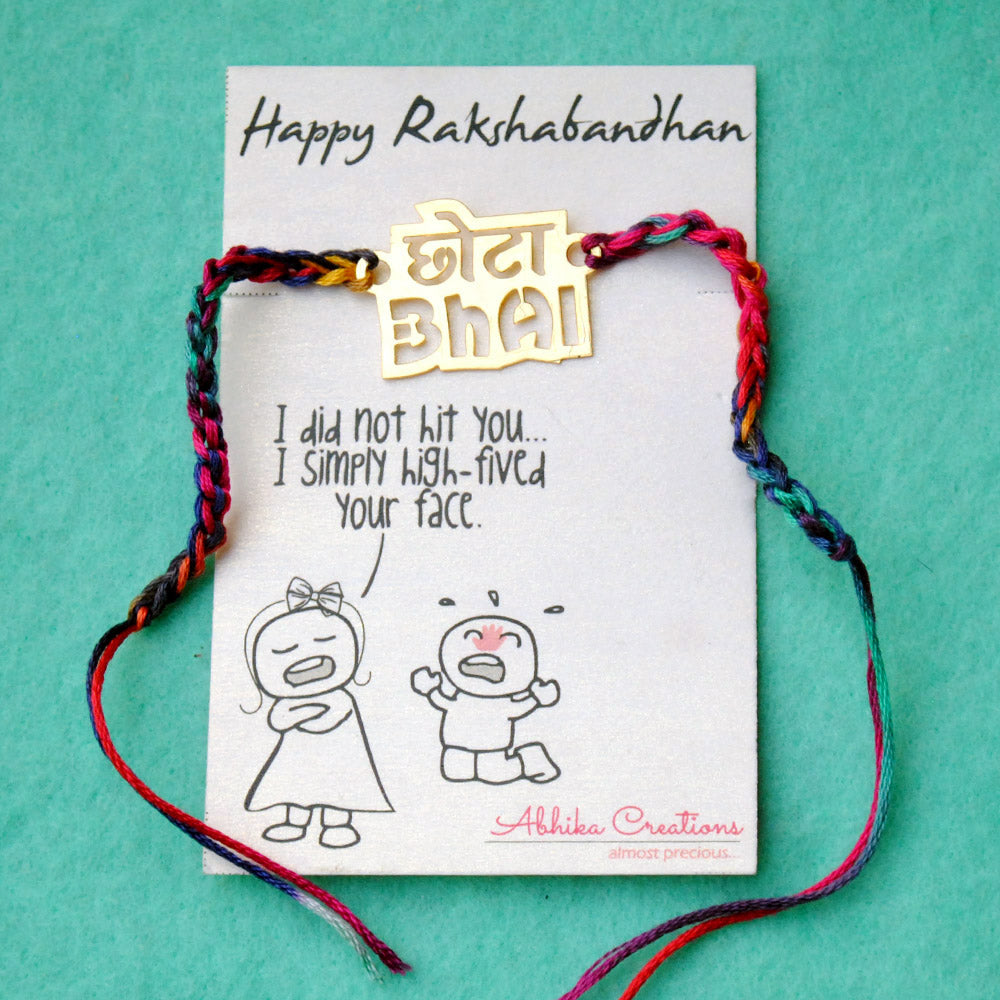 Happy Rakshabandhan
छोटा
BhAI
I did not hit you...
I simply high-fived
your face.
Abhika Creations
almost precious...